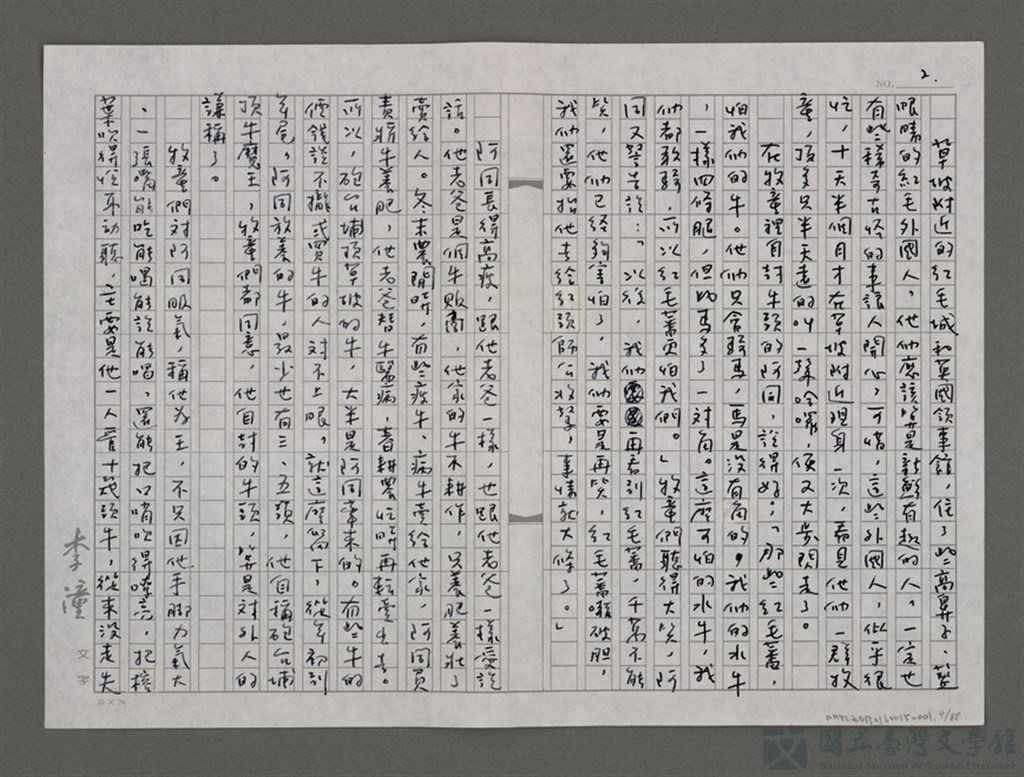 NO. 2.
草坡附近的紅毛城和英國領事館，住了些高鼻子、藍
眼睛的紅毛外國人，他們應該算是新鮮有趣的人，一定也
有些稀奇古怪的事讓人開心，可惜，這些外國人，似乎很
忙，十天半個月才在草坡附近現身一次，看見他們一群牧
童，頂多只半天遠的叫一聲哈囉，便又大步閃走了。
在牧童裡自封牛頭的阿同，說得好；「那些紅毛蕃，
怕我們的牛。他們只會騎馬，馬是沒有角的，我們的水牛
，一樣四條腿，但比馬多了一對角。這麼可怕的水牛，我
們都敢騎，所以紅毛蕃更怕我們。」牧童們聽得大笑，阿
同又警告說：「以後，我們再看到紅毛蕃，千萬不能
笑，他們已經夠害怕了，我們要是再笑，紅毛蕃嚇破膽，
我們還要抬他去給紅頭師公收驚，事情就大條了。」
阿同長得高瘦，跟他老爸一樣，也跟他老爸一樣愛說
話。他老爸是個牛販商，他家的牛不耕作，只養肥養壯了
賣給人。冬末農閒時，有些瘦牛、病牛賣給他家，阿同負
責將牛養肥，他老爸替牛醫病，春耕農忙時再転賣出去。
所以，砲台埔頂草坡的牛，大半是阿同牽來的。有些牛的
價錢談不攏或買牛的人對不上眼，就這麼留下，從年初到
年尾，阿同放養的牛，最少也有三、五頭，他自稱砲台埔
頂牛魔王，牧童們都同意，他自封的牛頭，算是對外人的
謙稱了。
牧童們對阿同服氣，稱他為王，不只因他手腳力氣大
、一張嘴能吃能喝能說能唱，還能把口哨吹得嘹亮，把樹
葉吹得悅耳動聽，主要是他一人管十幾頭牛，從來沒走失
李潼 文字
25 X 24
NMTL20130160015-001, 4/88
國立臺灣文學館
National Museum of Taiwan Literature